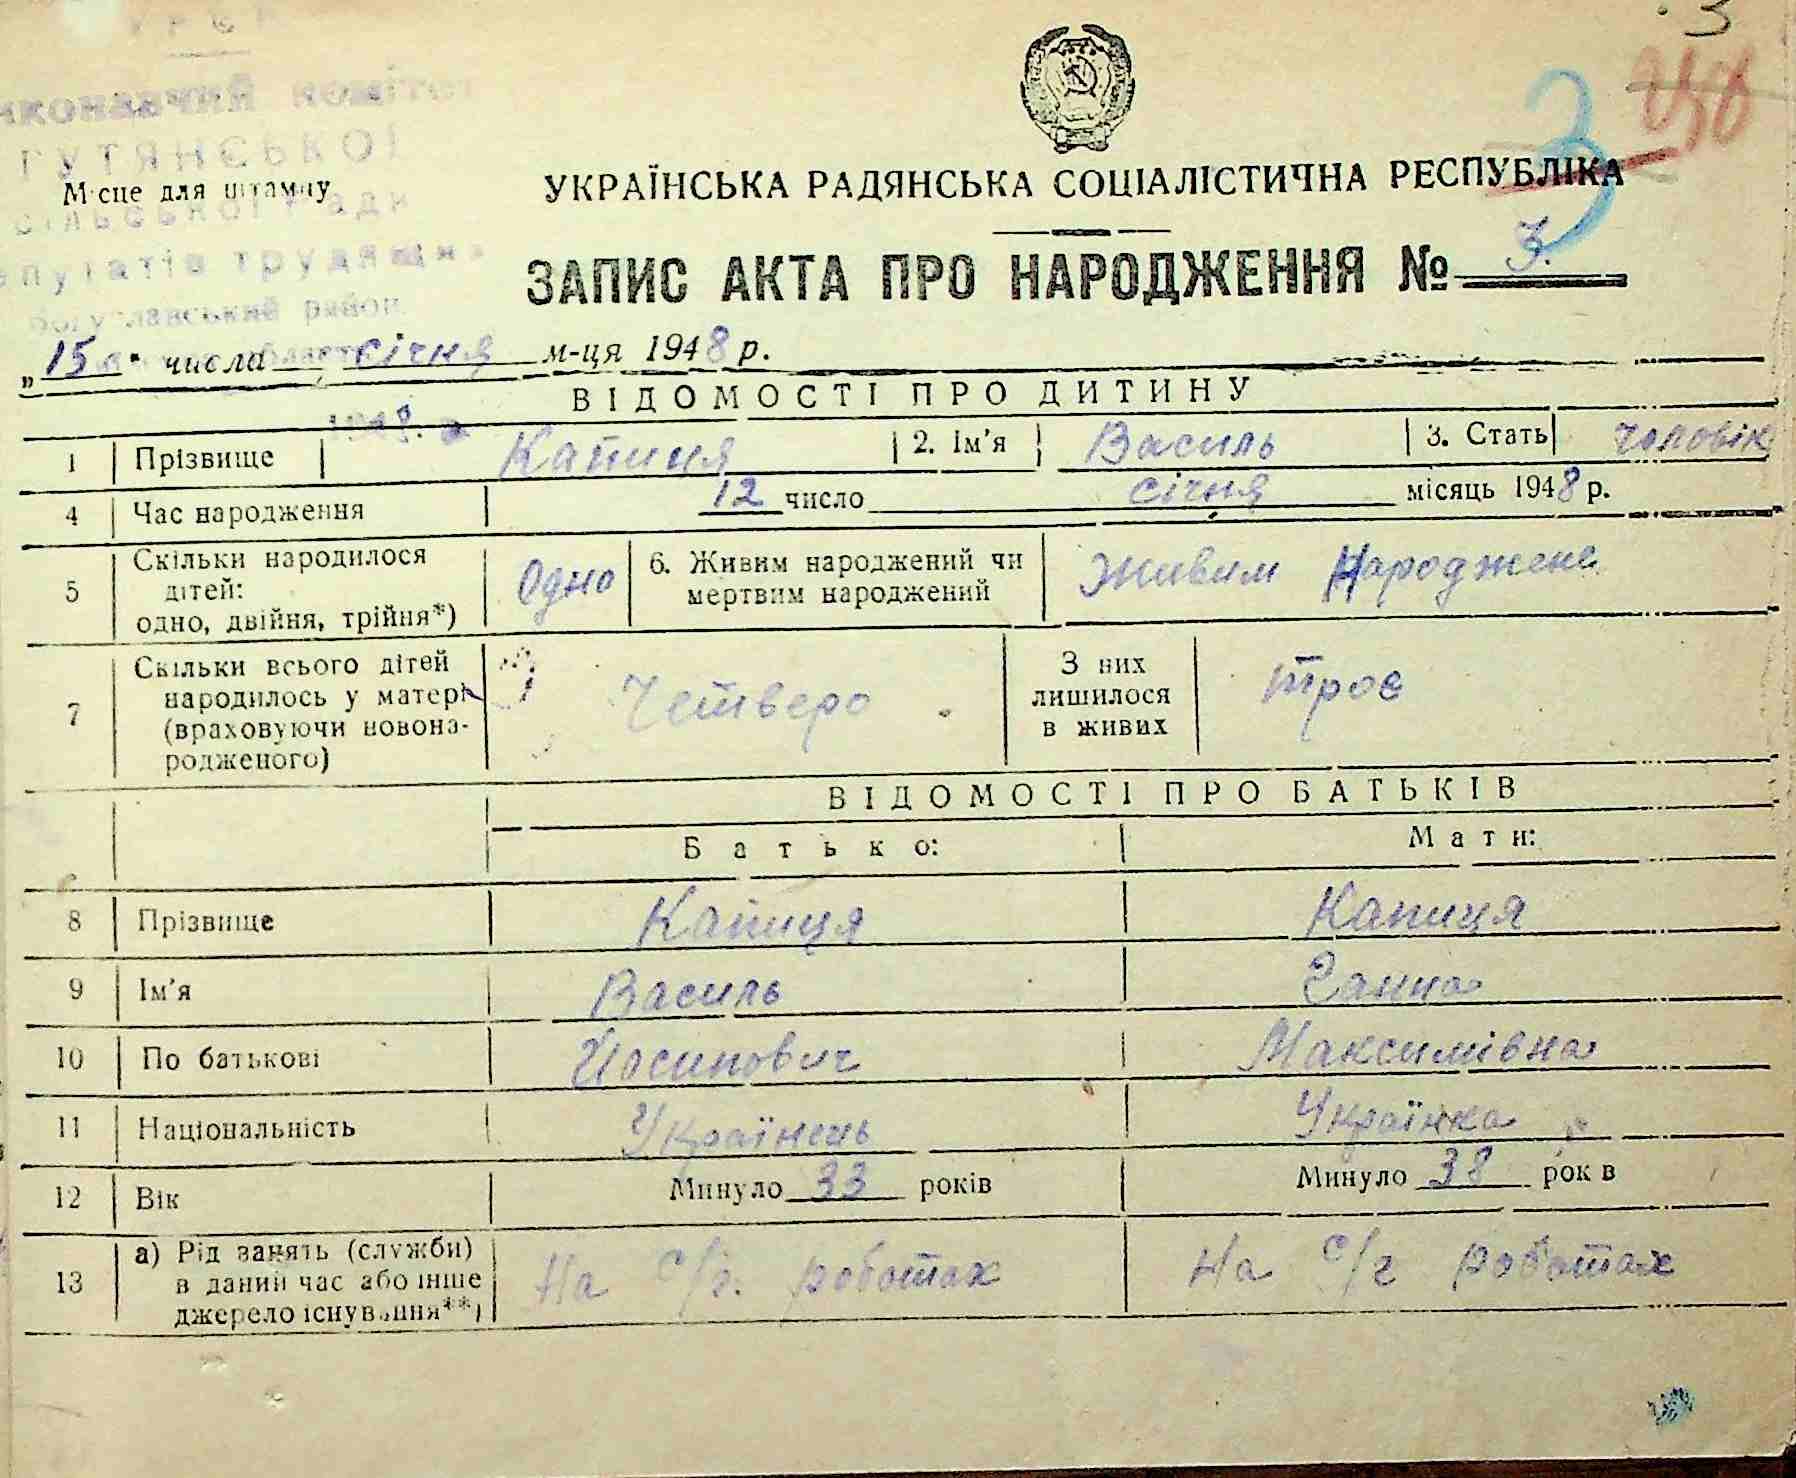 УРСР
Виконавчий комітет
ГУТЯНСЬКОЇ
Місце для штампу
сільської Ради
депутатів трудящих
Богуславський район
УКРАЇНСЬКА РАДЯНСЬКА СОЦІАЛІСТИЧНА РЕСПУБЛІКА
ЗАПИС АКТА ПРО НАРОДЖЕННЯ № 3.
„15" числа січня м-ця 1948 р.
ВІДОМОСТІ ПРО ДИТИНУ
1 Прізвище Капиця 2. Ім'я Василь 3. Стать чоловік
4 Час народження 12 число січня місяць 1948 р.
5 Скільки народилося дітей: одно, двійня, трійня*) Одно 6. Живим народжений чи мертвим народжений Живим Народжене
7 Скільки всього дітей народилось у матері (враховуючи новонародженого) Четверо З них лишилося в живих троє
ВІДОМОСТІ ПРО БАТЬКІВ
Батько: Мати:
8 Прізвище Капиця Капиця
9 Ім'я Василь Ганна
10 По батькові Йосипович Максимівна
11 Національність Українець Українка
12 Вік Минуло 33 років Минуло 38 років
13 а) Рід занять (служби) в даний час або інше джерело існування**) На с/г. роботах На с/г роботах